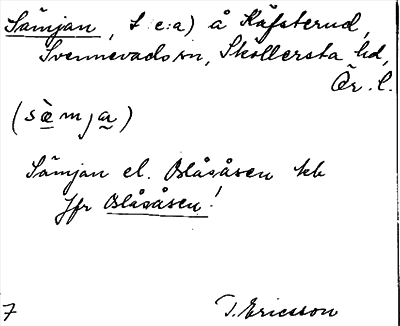 Sämjan, t e:a) å Käfsterud,
Svennevads sn, Sköllersta hd,
Ör. l.
(sæ̀mjar)
Sämjan el. Blåsåsen kk
Jfr Blåsåsen!
7 T. Ericsson